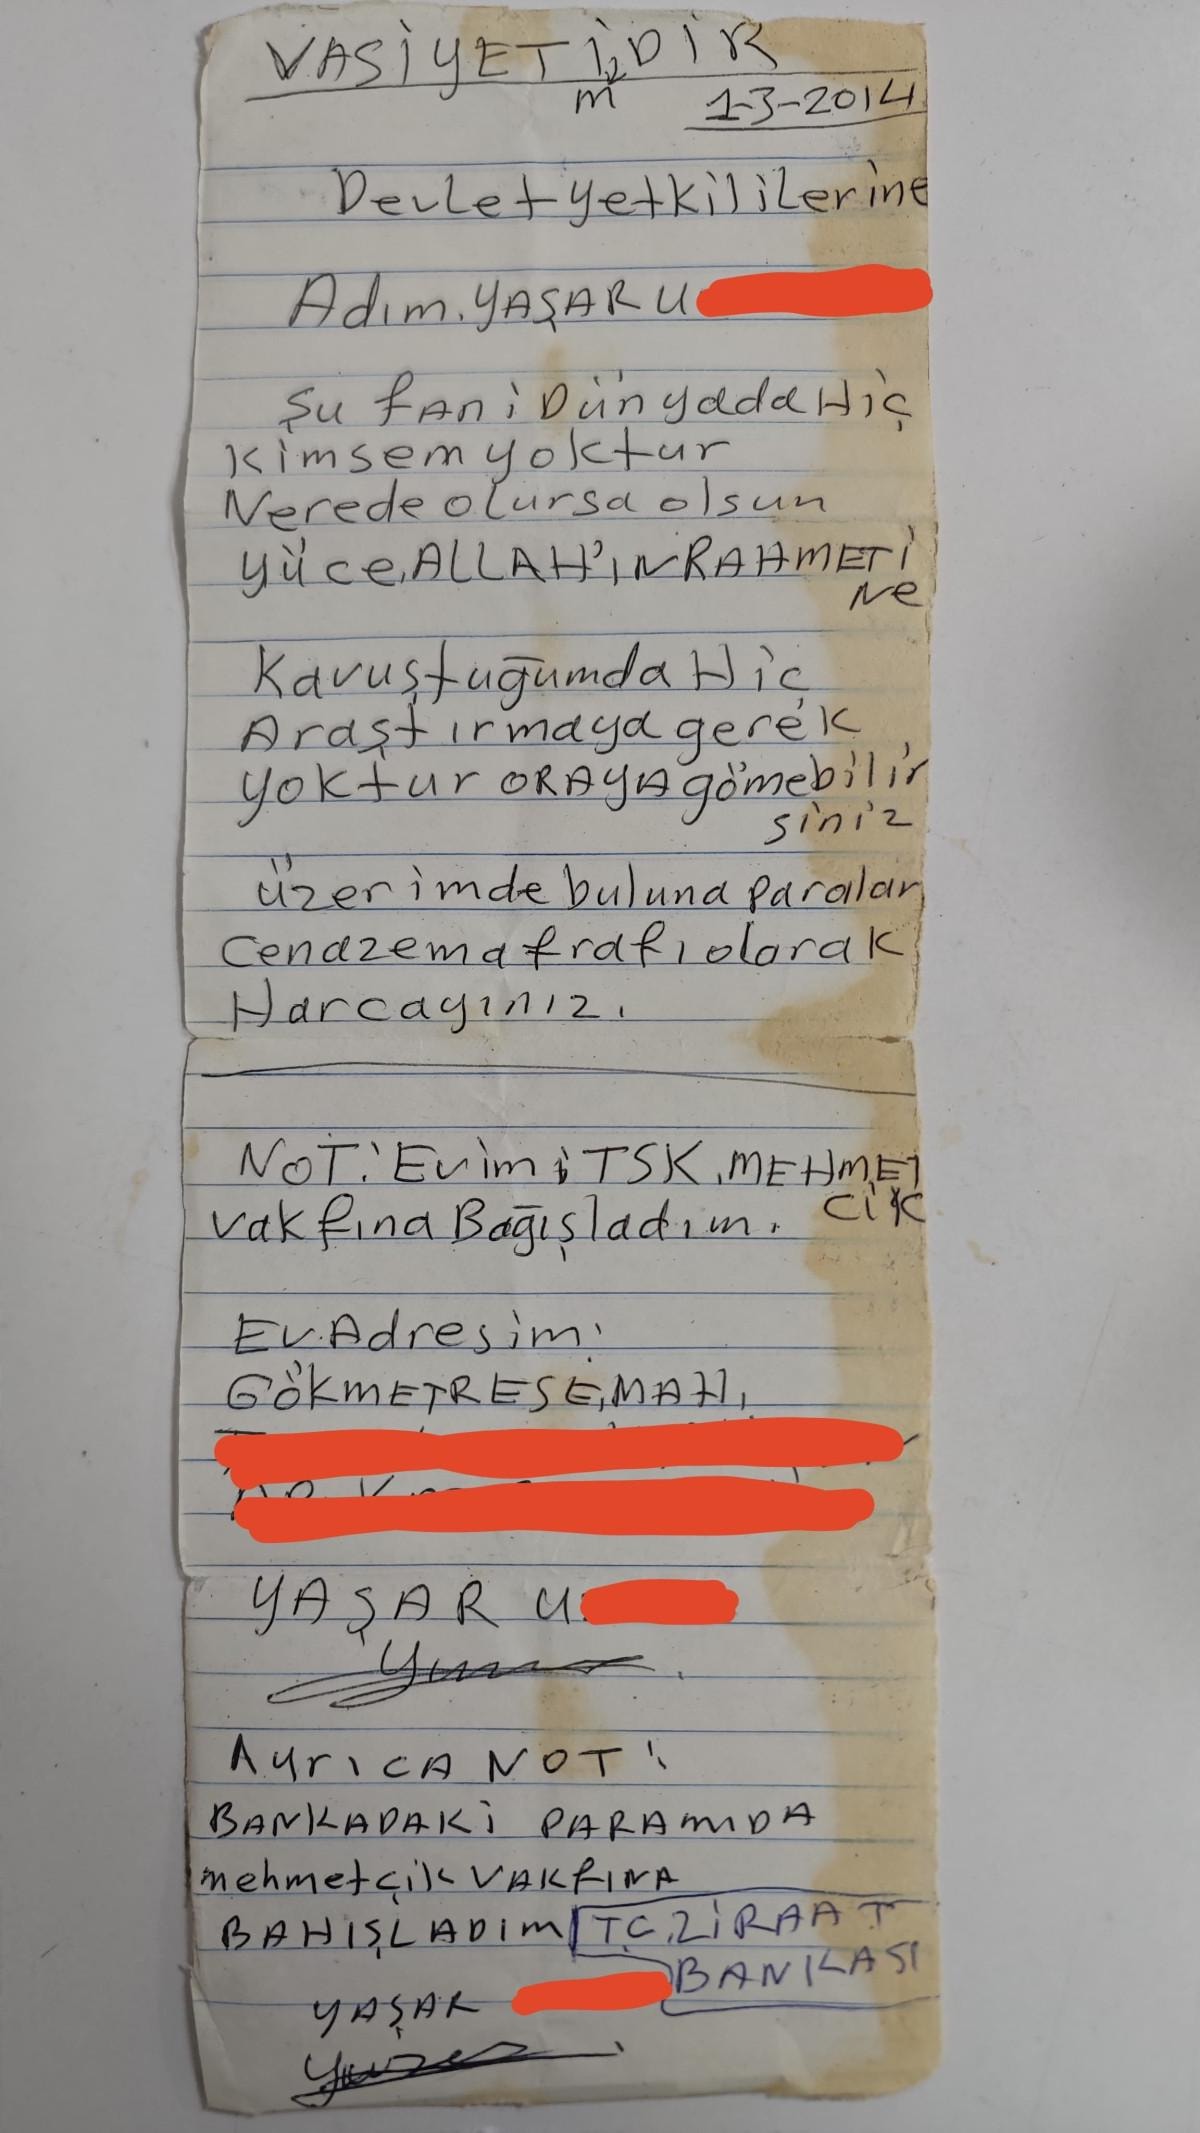 VASİYETİMDİR
1-3-2014
Devlet yetkililerine
Adım. YAŞAR U
Şu fani Dünyada Hiç
Kimsem yoktur
Nerede olursa olsun
Yüce, ALLAH'IN RAHMETİ
NE
Kavuştuğumda Hiç
Araştırmaya gerek
yoktur ORAYA gömebilir
siniz
Üzerimde buluna paralar
Cenazema frafı olarak
Harcayınız.
NOT: Evimi TSK, MEHMET
CİK
vakfına Bağışladım.
Ev. Adresim:
GÖKMETRESE, MAH,
YAŞAR U
AyrıCA NOT:
BANKADAKİ PARAMIDA
mehmetçik VAKFINA
BAHIŞLADIM T.C. ZİRAAT
BANKASI
YAŞAR